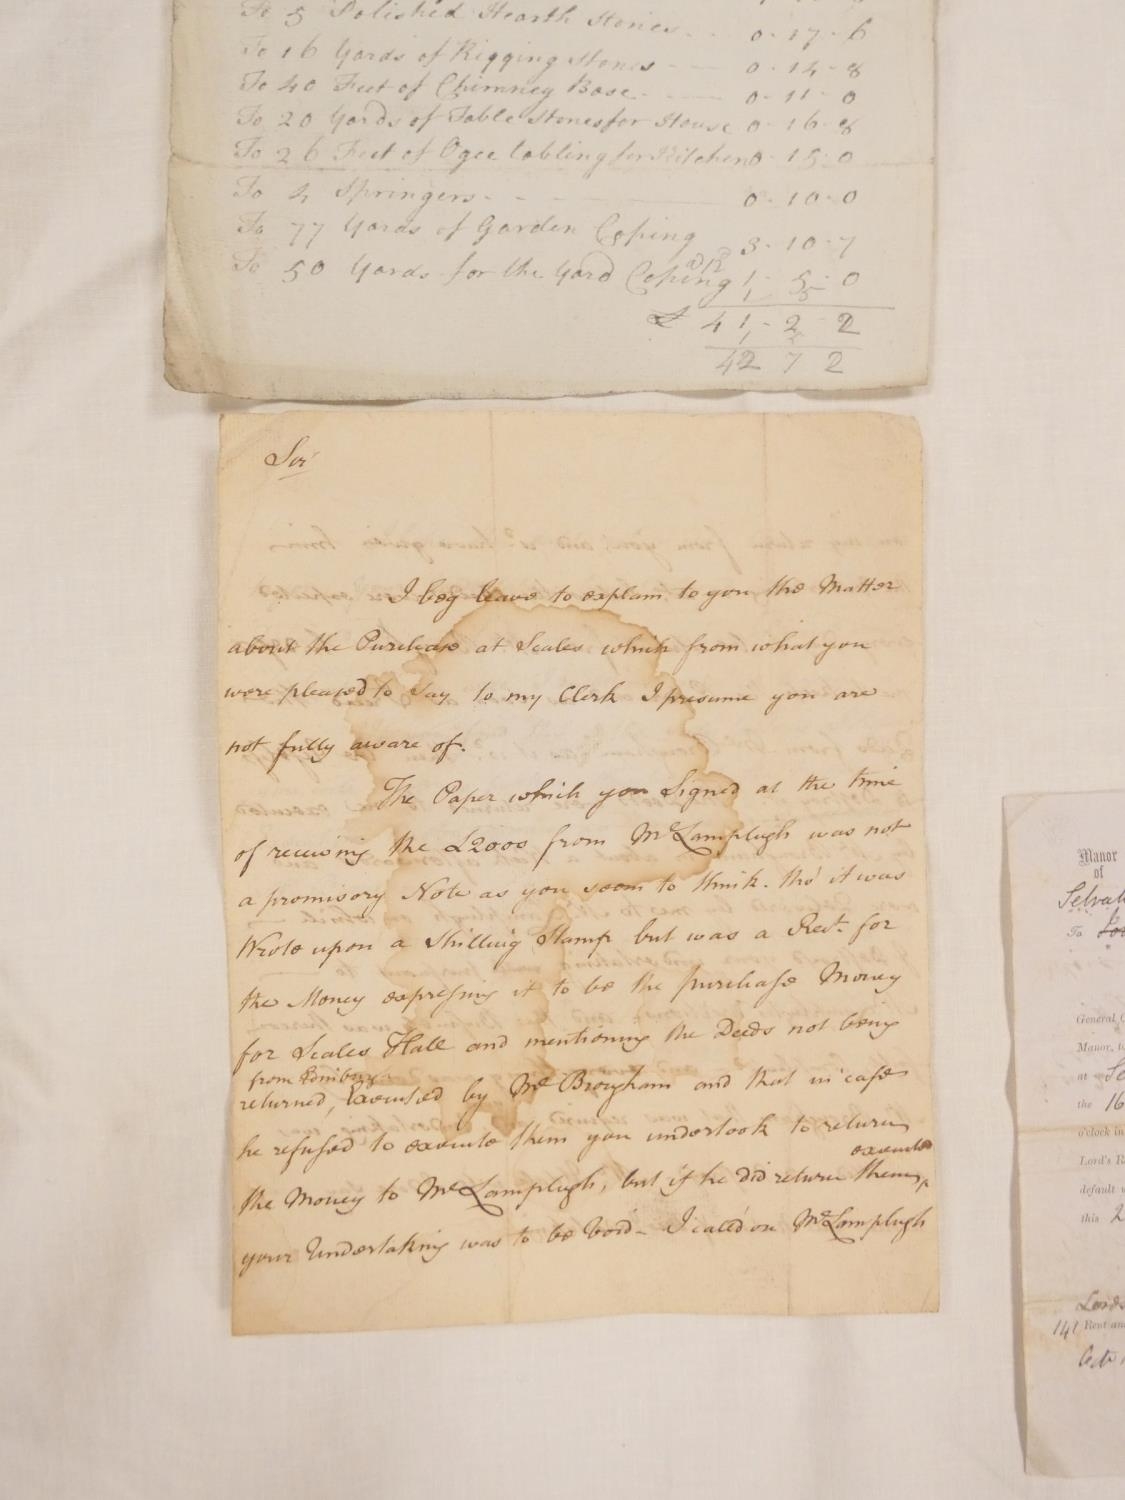 To 5 Polished Hearth Stones - - 0 - 17 - 6
To 16 Yards of Rigging Stones - - 0 - 14 - 8
To 40 Feet of Chimney Base - - 0 - 11 - 0
To 20 Yards of Table Stones for House 0 - 16 - 8
To 26 Feet of Ogee Tabling for Kitchen 0 - 15 - 0
To 4 Springers - - - 0 - 10 - 0
To 77 Yards of Garden Coping 3 - 10 - 7
To 50 Yards for the Yard Coping 1 - 5 - 0
£ 41 - 2 2
1 5
42 7 2
Sir
I beg leave to explain to you the Matter
about the Purchase at Scales which from what you
were pleased to Say to my Clerk I presume you are
not fully aware of.
The Paper which you Signed at the time
of receiving the £2000 from Mr Lamplugh was not
a promisory Note as you seem to think. tho' it was
Wrote upon a Shilling Stamp but was a Rect. for
the Money expressing it to be the purchase Money
for Scales Hall and mentioning the Deeds not being
from
returned, Executed by Mr Brougham and that in case
he refused to execute them you undertook to return
executed
the Money to Mr Lamplugh, but if he did return them,
your Undertaking was to be Void - I called on Mr Lamplugh
Manor
of
To
General
Manor, to
at
the 16
o'clock in
Lord's R
default
this 2
Lords
141 Rent an